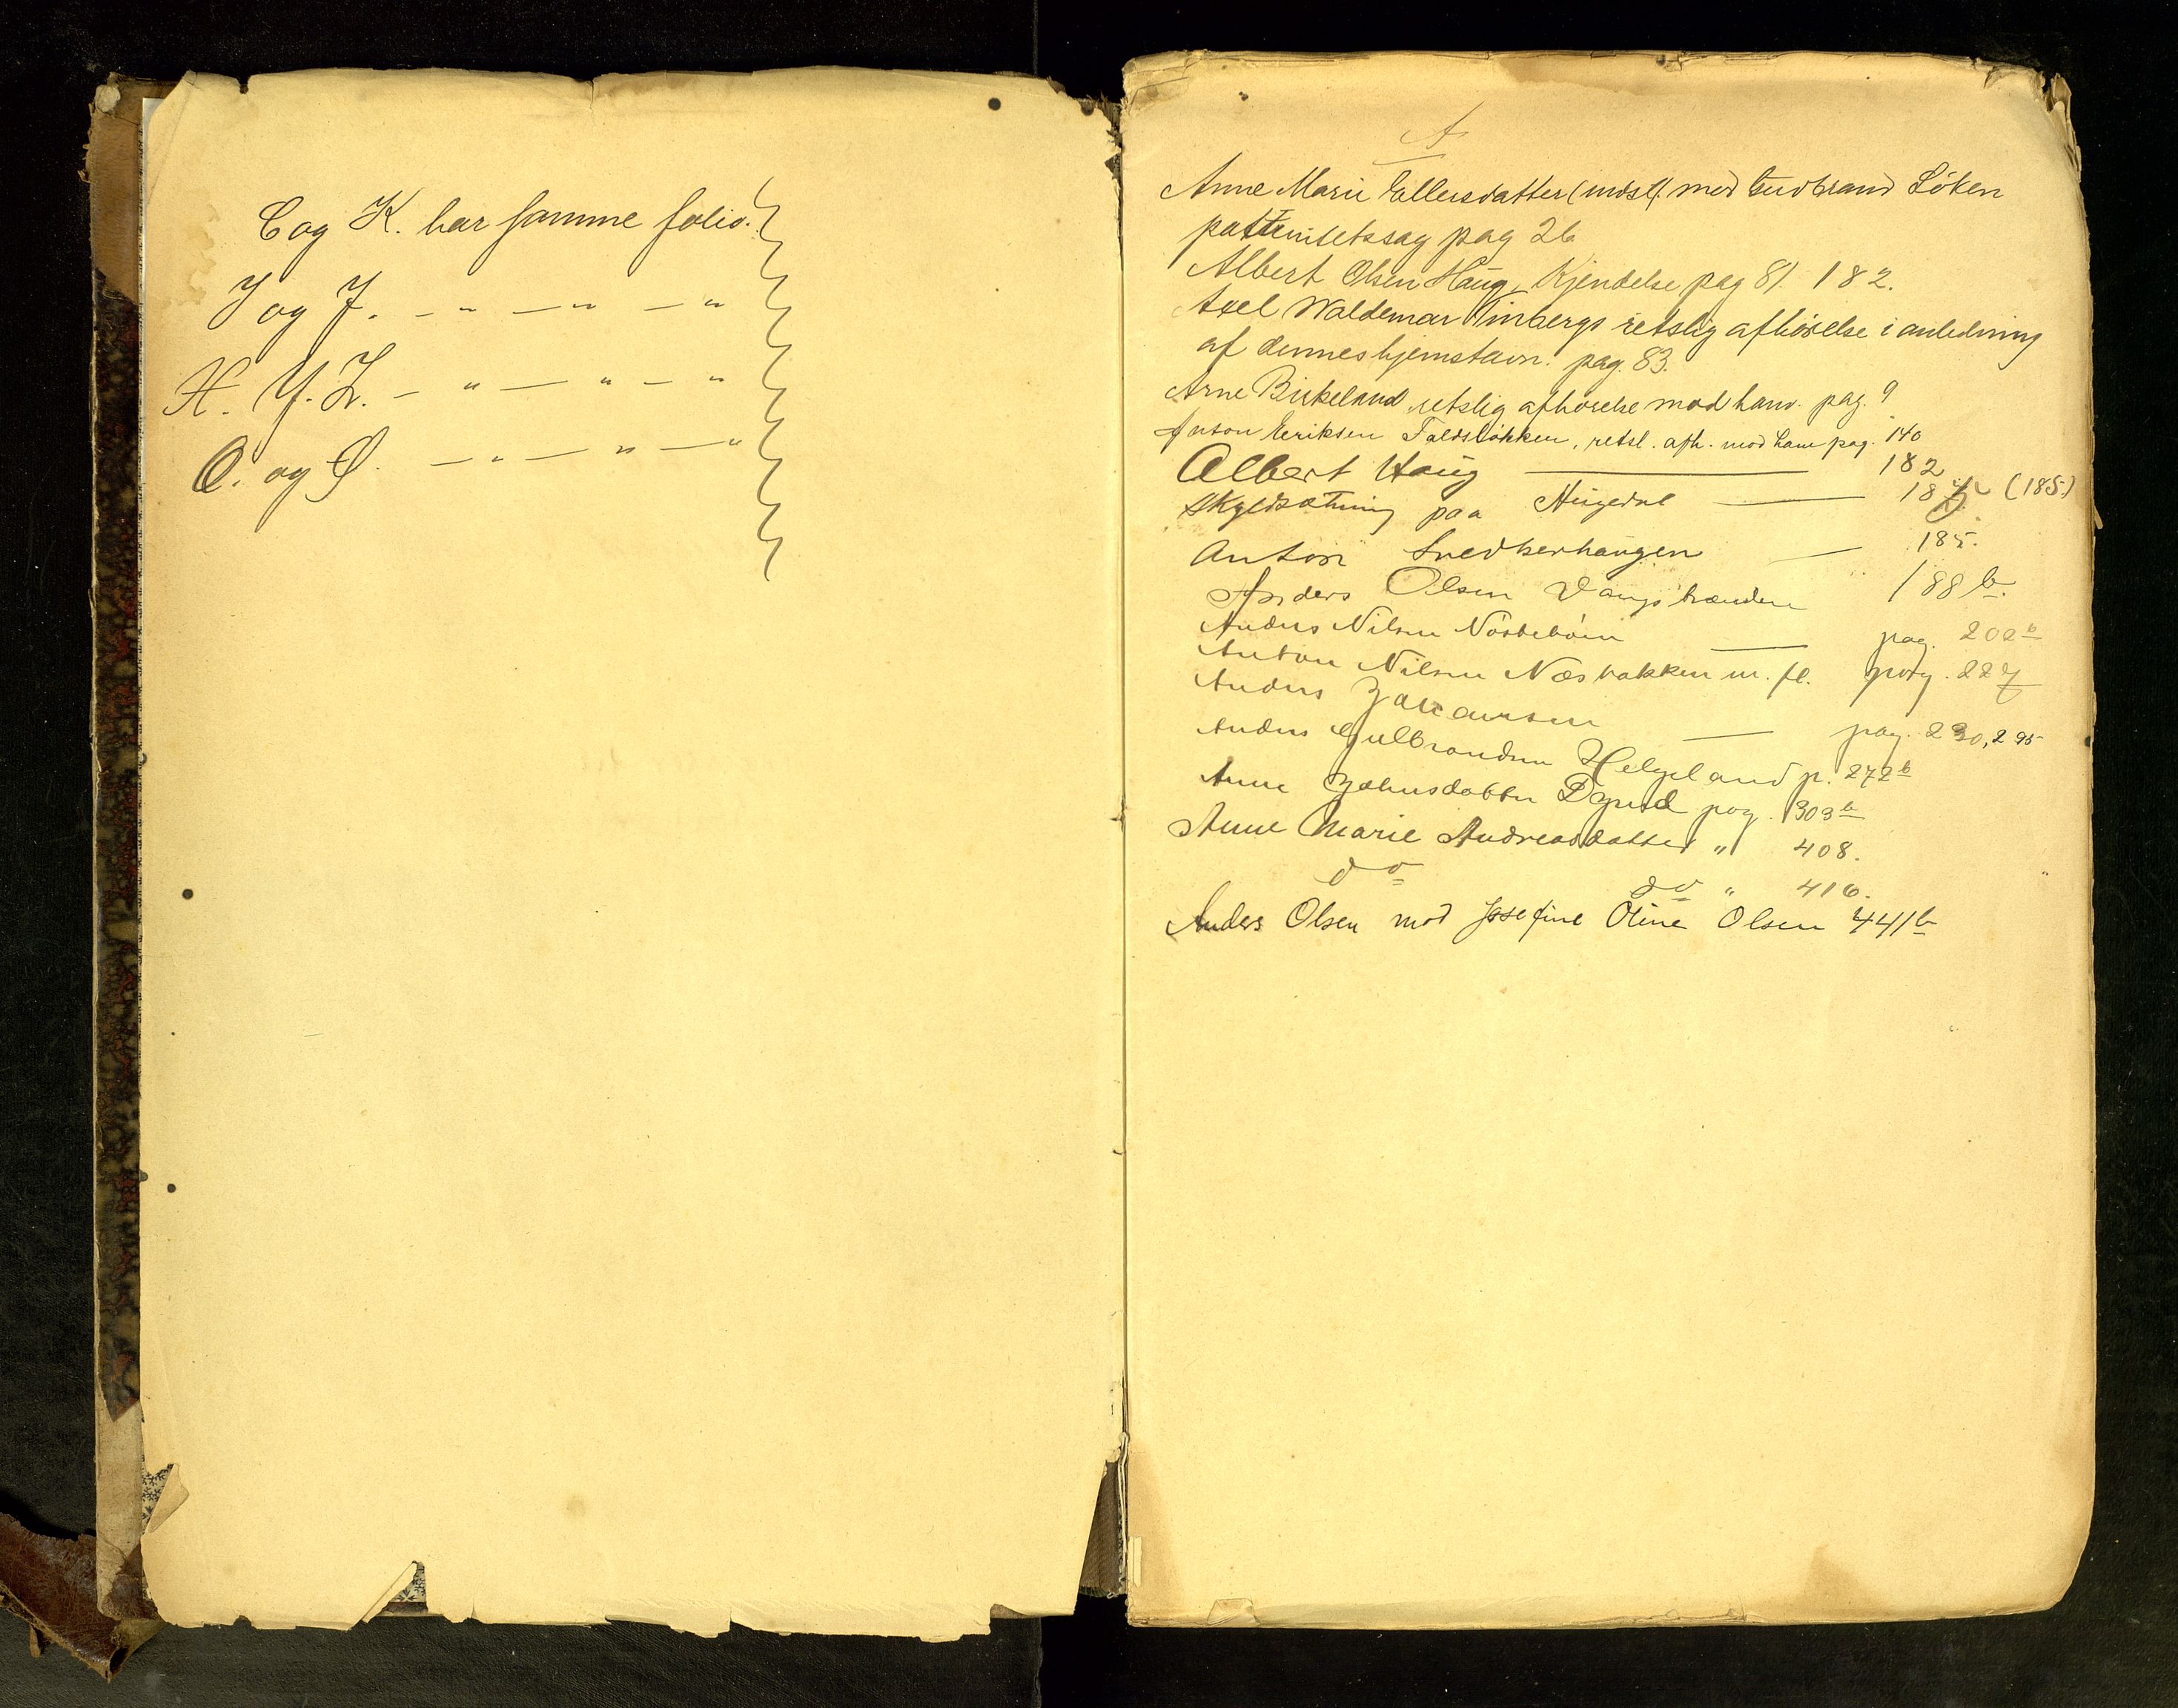 C og K. har samme folio.
I og J. — " — " — "
H. Y. Z. — " — " — "
O. og Ø. — " — " — "
A
Anne Marie Ellersdatter (indst. mod Gudbrand Löken
patternitetssag pag 26
Albert Olsen Haug, Kjendelse pag 81. 182.
Axel Waldemar Vinbergs retslig afhörelse i anledning
af dennes hjemstavn. pag. 83.
Arne Birkeland retslig afhörelse mod ham. pag. 9
Anton Eriksen Faldsløkken, retsl. afh. mod ham pag. 140
Albert Haug — 182
Skyldsætning paa — 187 (185.)
Anton Snedkerhaugen — 185.
Anders Olsen 188 b.
Anders Nilsen — pag. 202 b
Anton Nilsen Næsbakken m. fl. pag. 227
Anders Zakariasen — pag. 230, 295
Anders Gulbrandsen Helgeland p. 272 b
Anne Johnsdatter pag. 303 b
Anne Marie Andreasdatter " 408.
do do " 416.
Anders Olsen mod Josefine Oline Olsen 441 b